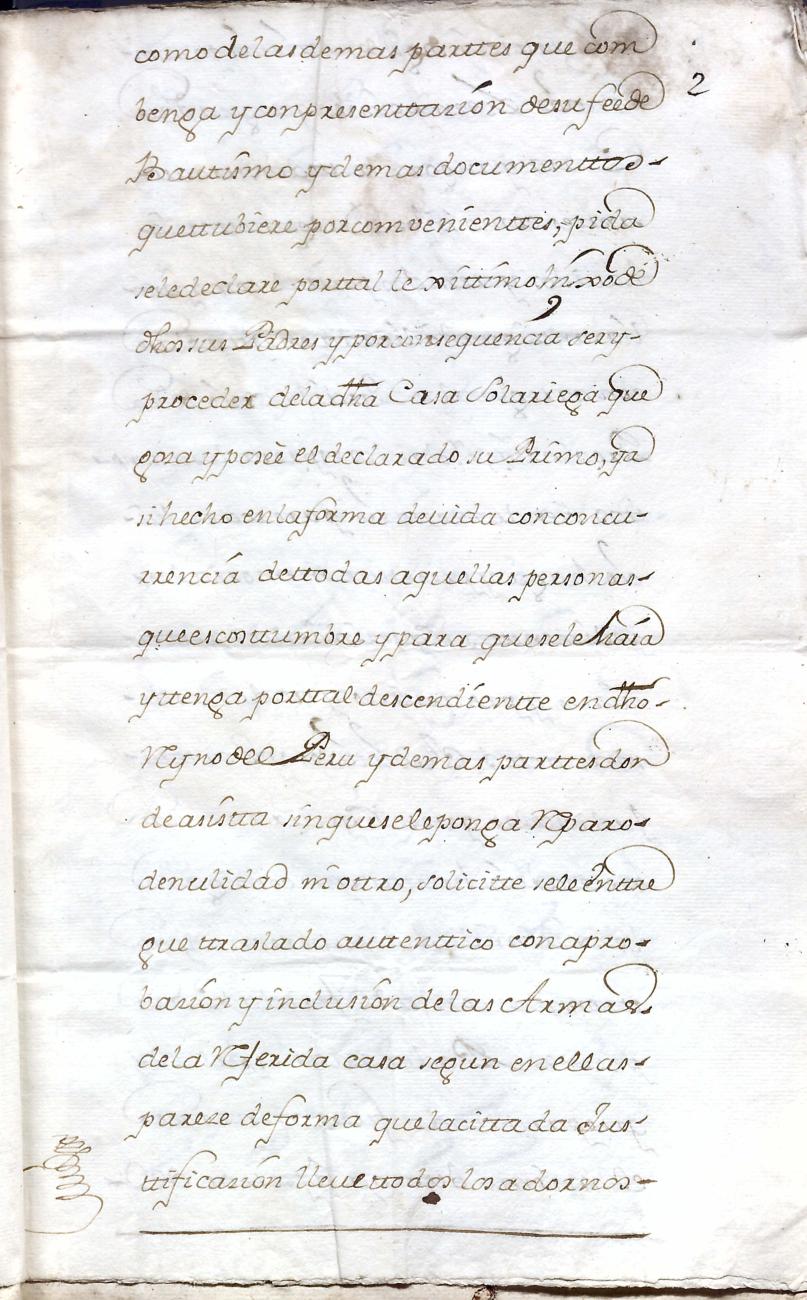 2
como de las demas parttes que com
benga y con presenttazión de su fee de
Bautismo y demas documenttos
que ttubiere por combenienttes, pida
se le declare por ttal lexittimo hixo de
dhos sus Padres y por consequencia ser y
proceder de la dha Casa Solariega que
goza y poseè el declarado su Primo, y a
si hecho en la forma devida con concu-
rrencia de ttodas aquellas personas
que es costtumbre y para que se le haia
y ttenga por ttal descendientte en dho
Ryno del Peru y demas parttes don
de asistta sin que se le ponga Rparo
de nulidad ni ottro, solicitte se le enttre
gue ttraslado auttenttico con apro-
bazión y inclusión de las Armas
de la Rferida casa segun en ellas
pareze de forma que la cittada Jus-
ttificazión lleve ttodos los adornos